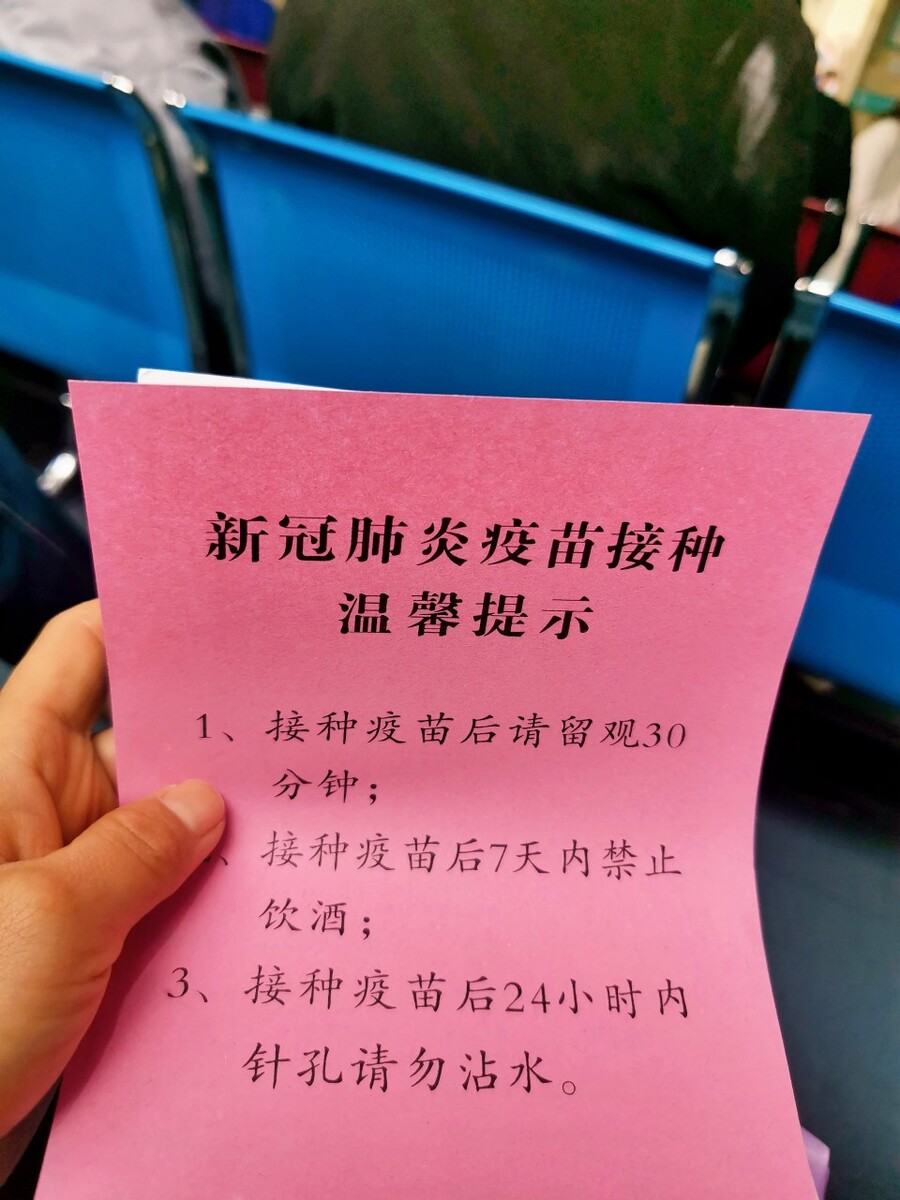 新冠肺炎疫苗接种
温馨提示
1、接种疫苗后请留观30
分钟；
、接种疫苗后7天内禁止
饮酒；
3、接种疫苗后24小时内
针孔请勿沾水。